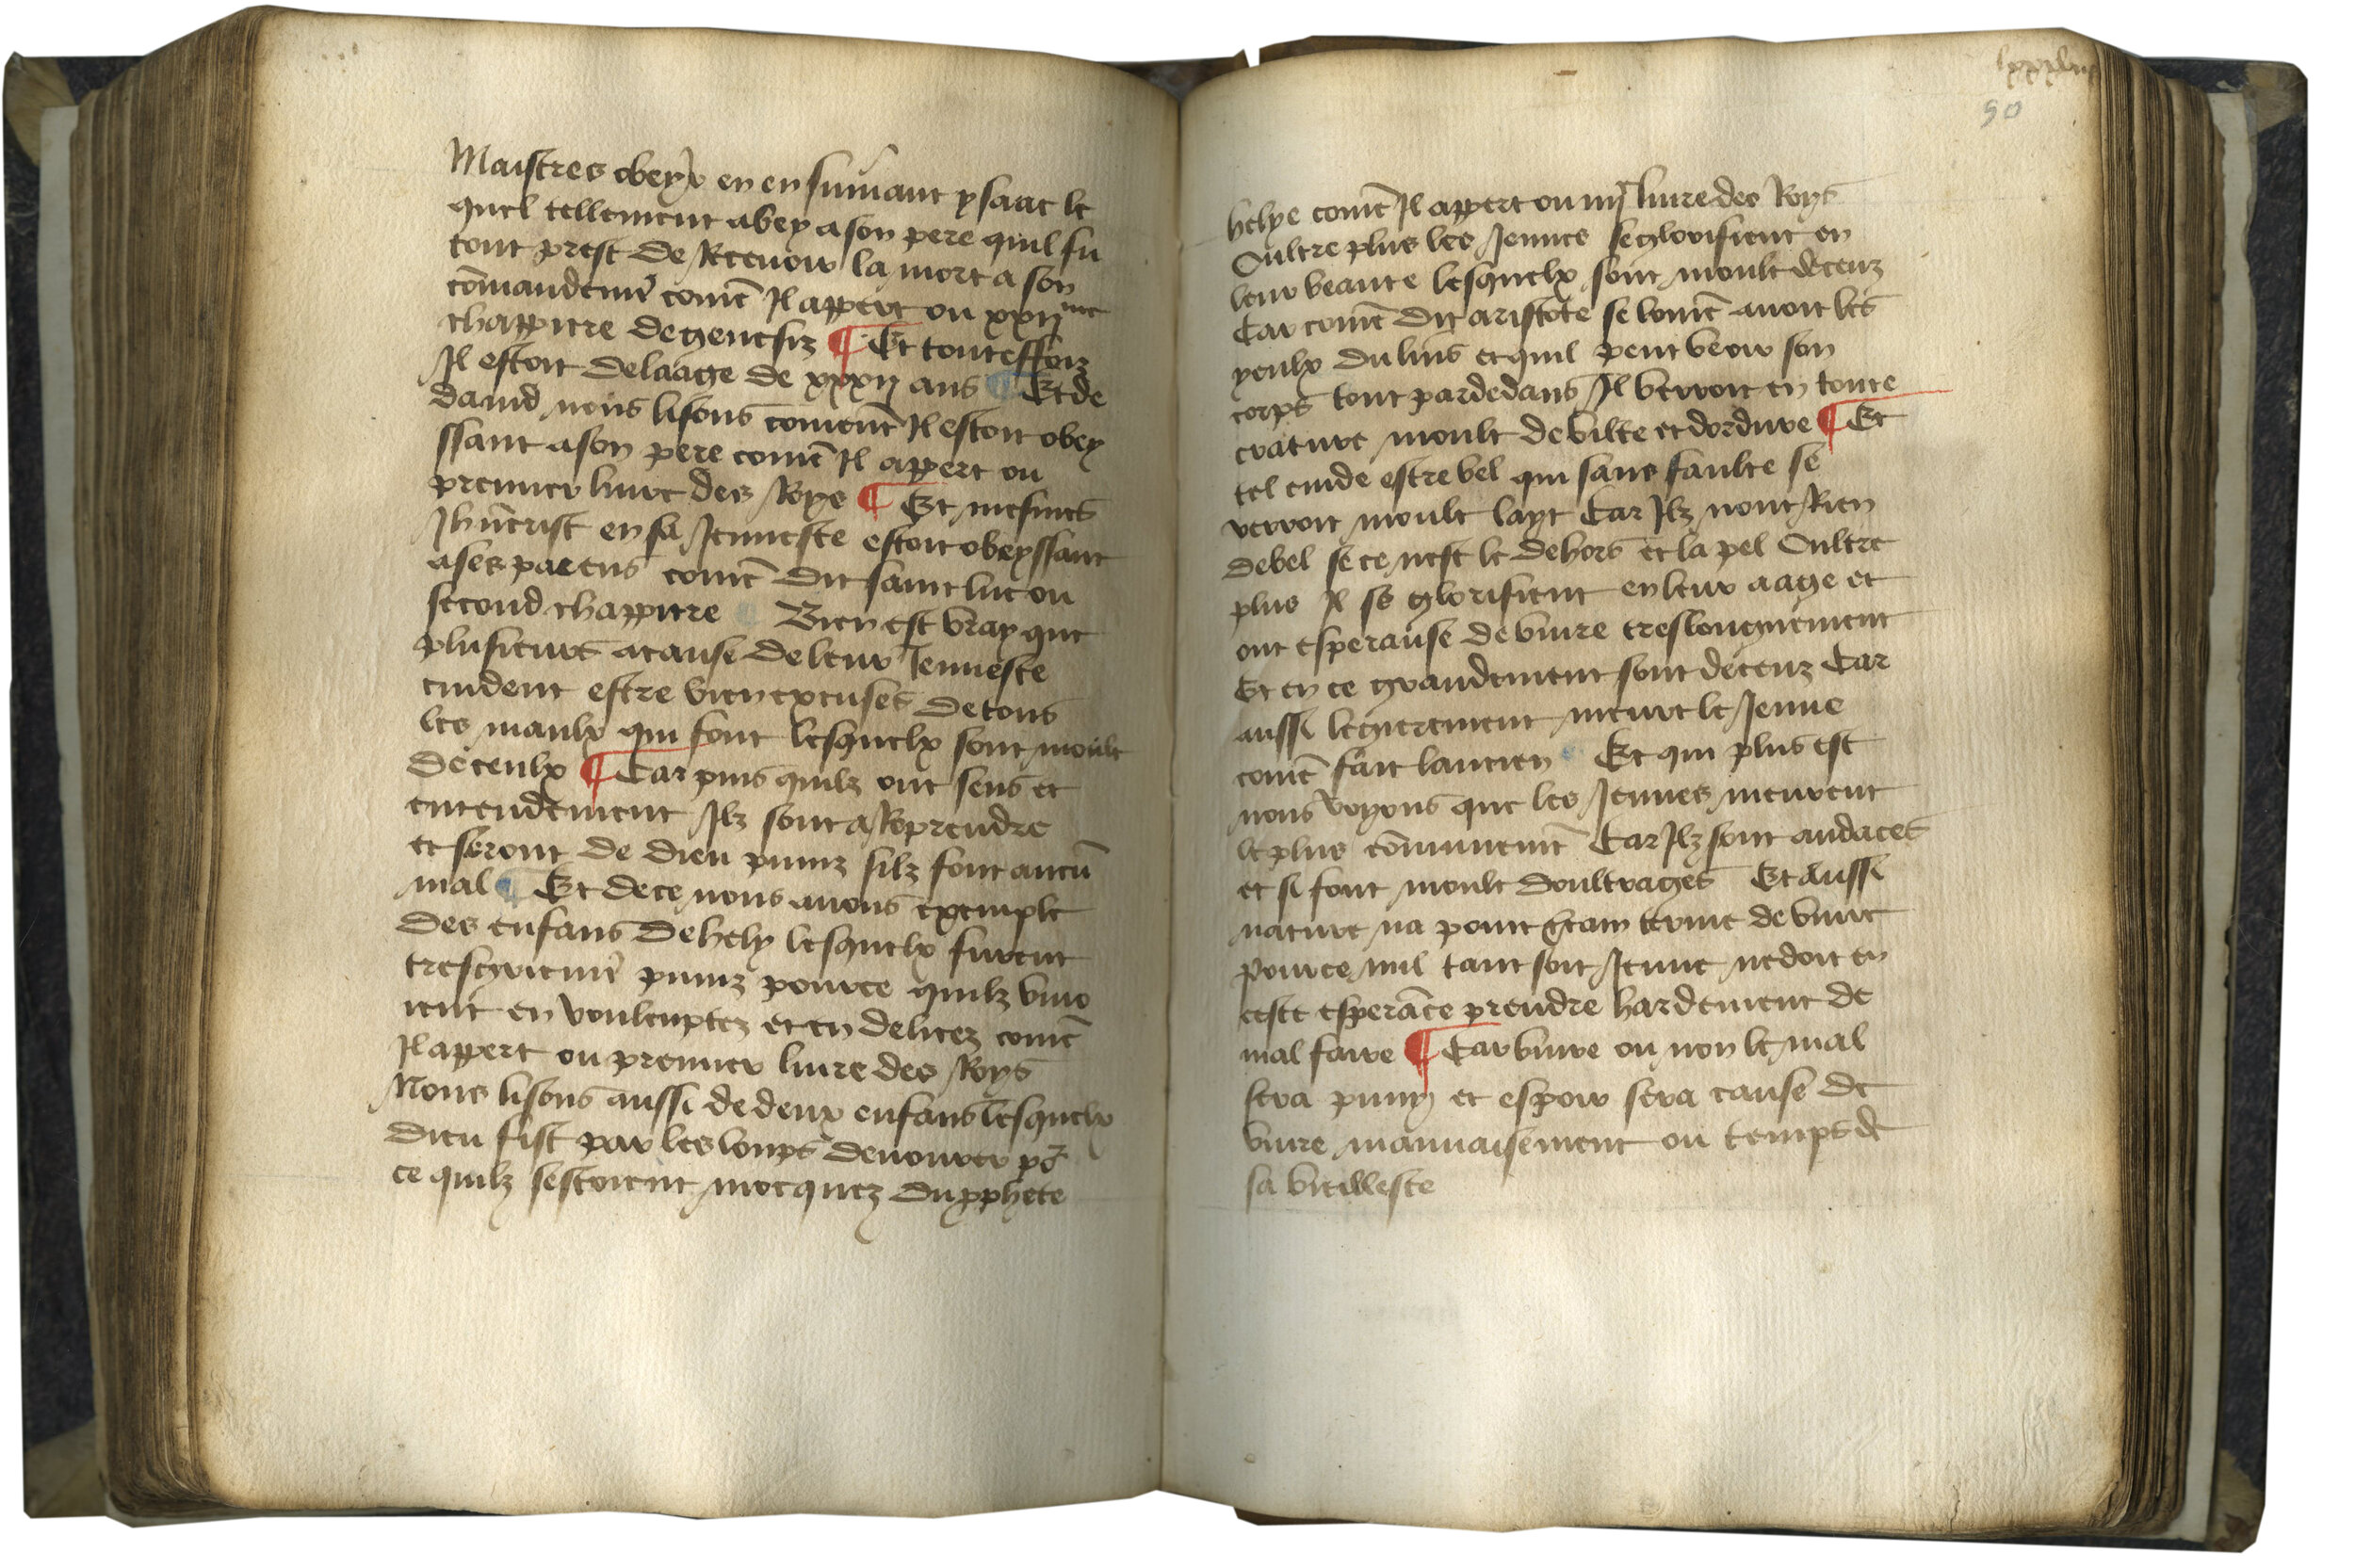 Maistres obeyr en ensuiuant ysaac le
quel tellement abey a son pere quil fu
tout prest de Receuoir la mort a son
cōmandemēt comē Il appert ou xxijme
chappitre de genesiz ¶ Et touteffoiz
Il estoit de laage de xxxij ans ¶ Et de
dauid nous lisons comēnt Il estoit obey
ssant a son pere comē Il appert ou
premier liure des Roys ¶ Et mesmes
Jhūcrist en sa Jeunesse estoit obeyssant
a ses parens comē dit saint luc ou
second chappitre ¶ Bien est vray que
plusieurs a cause de leur Jeunesse
cuident estre bien excuses de tous
les maulx qui font lesquelx sont moult
deceulx ¶ Car puis quilz ont sens et
entendement Ilz sont a Reprendre
et seront de dieu puniz silz font aucū
mal ¶ Et de ce nous auons exemple
des enfans de hely lesquelx furent
tresgriemēt puniz pource quilz viuo
ient en vouluptez et en delicez comē
Il appert ou premier liure des Roys
Nous lisons aussi de deux enfans lesquelx
dieu fist par les loups deuourer po^r
ce quilz sestoient mocquez du pphete
lxxxix
90
helye comē Il appert ou iiije liure des Roys
Oultre plus les Jeunes se glorifient en
leur beaute lesquelx sont moult deceuz
Car comē dit aristote se lomē auoit les
yeulx du lins et quil peut veoir son
corps tout par dedans Il verroit en toute
crature moult de vilte et dordure ¶ Et
tel cuide estre bel qui sans faulte se
verroit moult layt Car Ilz nont Rien
de bel se ce nest le dehors et la pel Oultre
plus Il se glorifient en leur aage et
ont esperanse de viure treslonguement
Et en ce grandement sont deceuz Car
aussi legierement meurt le Jeune
comē fait lancien ¶ Et qui plus est
nous voyons que les Jeunes meurent
le plus cōmunemēt Car Ilz sont audaces
et si font moult doultrages Et Aussi
nature na point terme de viure
pource nul tant soit Jeune ne doit en
ceste esperāce prendre hardement de
mal faire ¶ Car viure ou non le mal
sera puny et espoir sera cause de
viure mauuaisement ou temps de
sa vieillesse